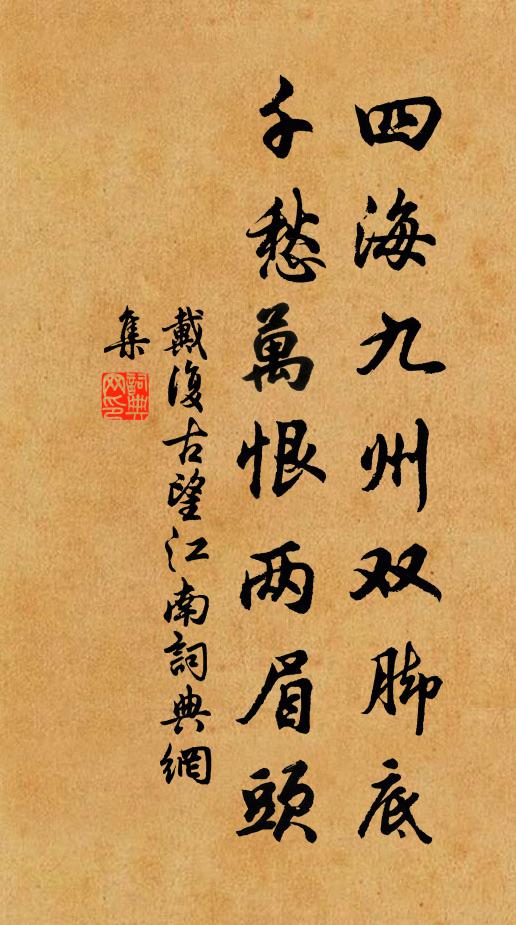 四海九州双脚底
千愁萬恨两眉頭
戴復古望江南詞典網
集
詞典网印